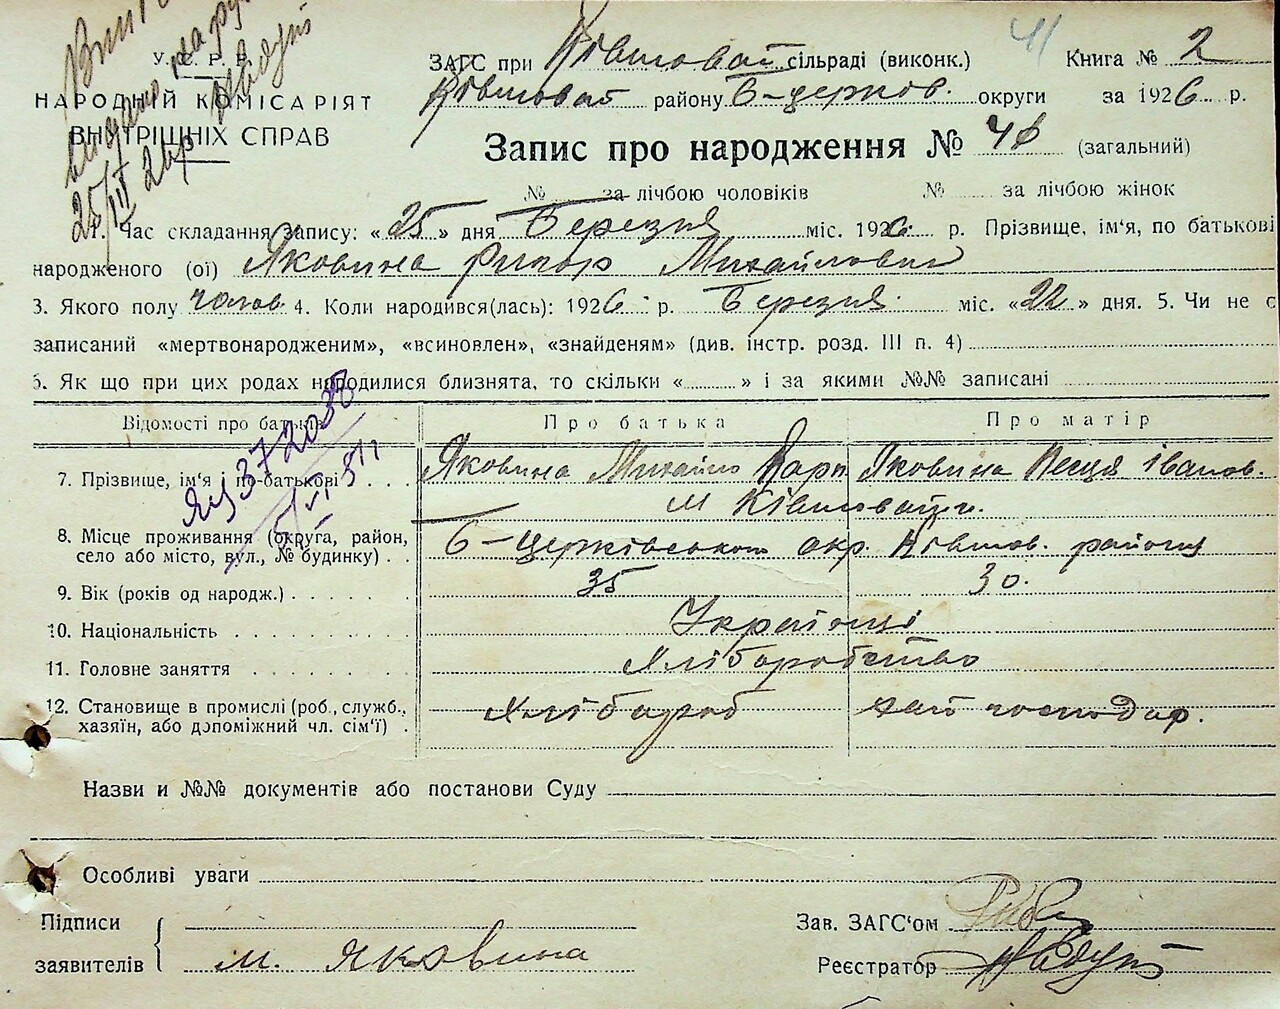 У. С. Р. Р.
НАРОДНИЙ КОМІСАРІЯТ
ВНУТРІШНІХ СПРАВ
видано на руки
25/III 26 р.
41
ЗАГС при Ківшоват сільраді (виконк.) Книга № 2
Ківшоват району Б-церков. округи за 1926 р.
Запис про народження № (загальний)
№ за лічбою чоловіків № за лічбою жінок
1. Час складання запису: «25» дня Березня міс. 1926 р. Прізвище, ім'я, по батькові
народженого (ої) Яковина Михайлович
3. Якого полу чолов 4. Коли народився(лась): 1926 р. Березня міс. «22» дня. 5. Чи не є
записаний «мертвонародженим», «всиновлен», «знайденям» (див. інстр. розд. III п. 4)
6. Як що при цих родах народилися близнята, то скільки « » і за якими №№ записані
Відомості про батьків Про батька Про матір
7. Прізвище, ім'я і по-батькові Яковина Михайло Карп Яковина Іванов.
8. Місце проживання (округа, район, село або місто, вул., № будинку) м Ківшовати
Б-церківського окр. Ківшов. району
9. Вік (років од народж.) 35 30.
10. Національність Українці
11. Головне заняття Хліборобство
12. Становище в промислі (роб., служб., хазяїн, або допоміжний чл. сім'ї) хлібороб господар.
Назви и №№ документів або постанови Суду
Особливі уваги
Підписи
заявителів М. Яковина
Зав. ЗАГС'ом
Реєстратор